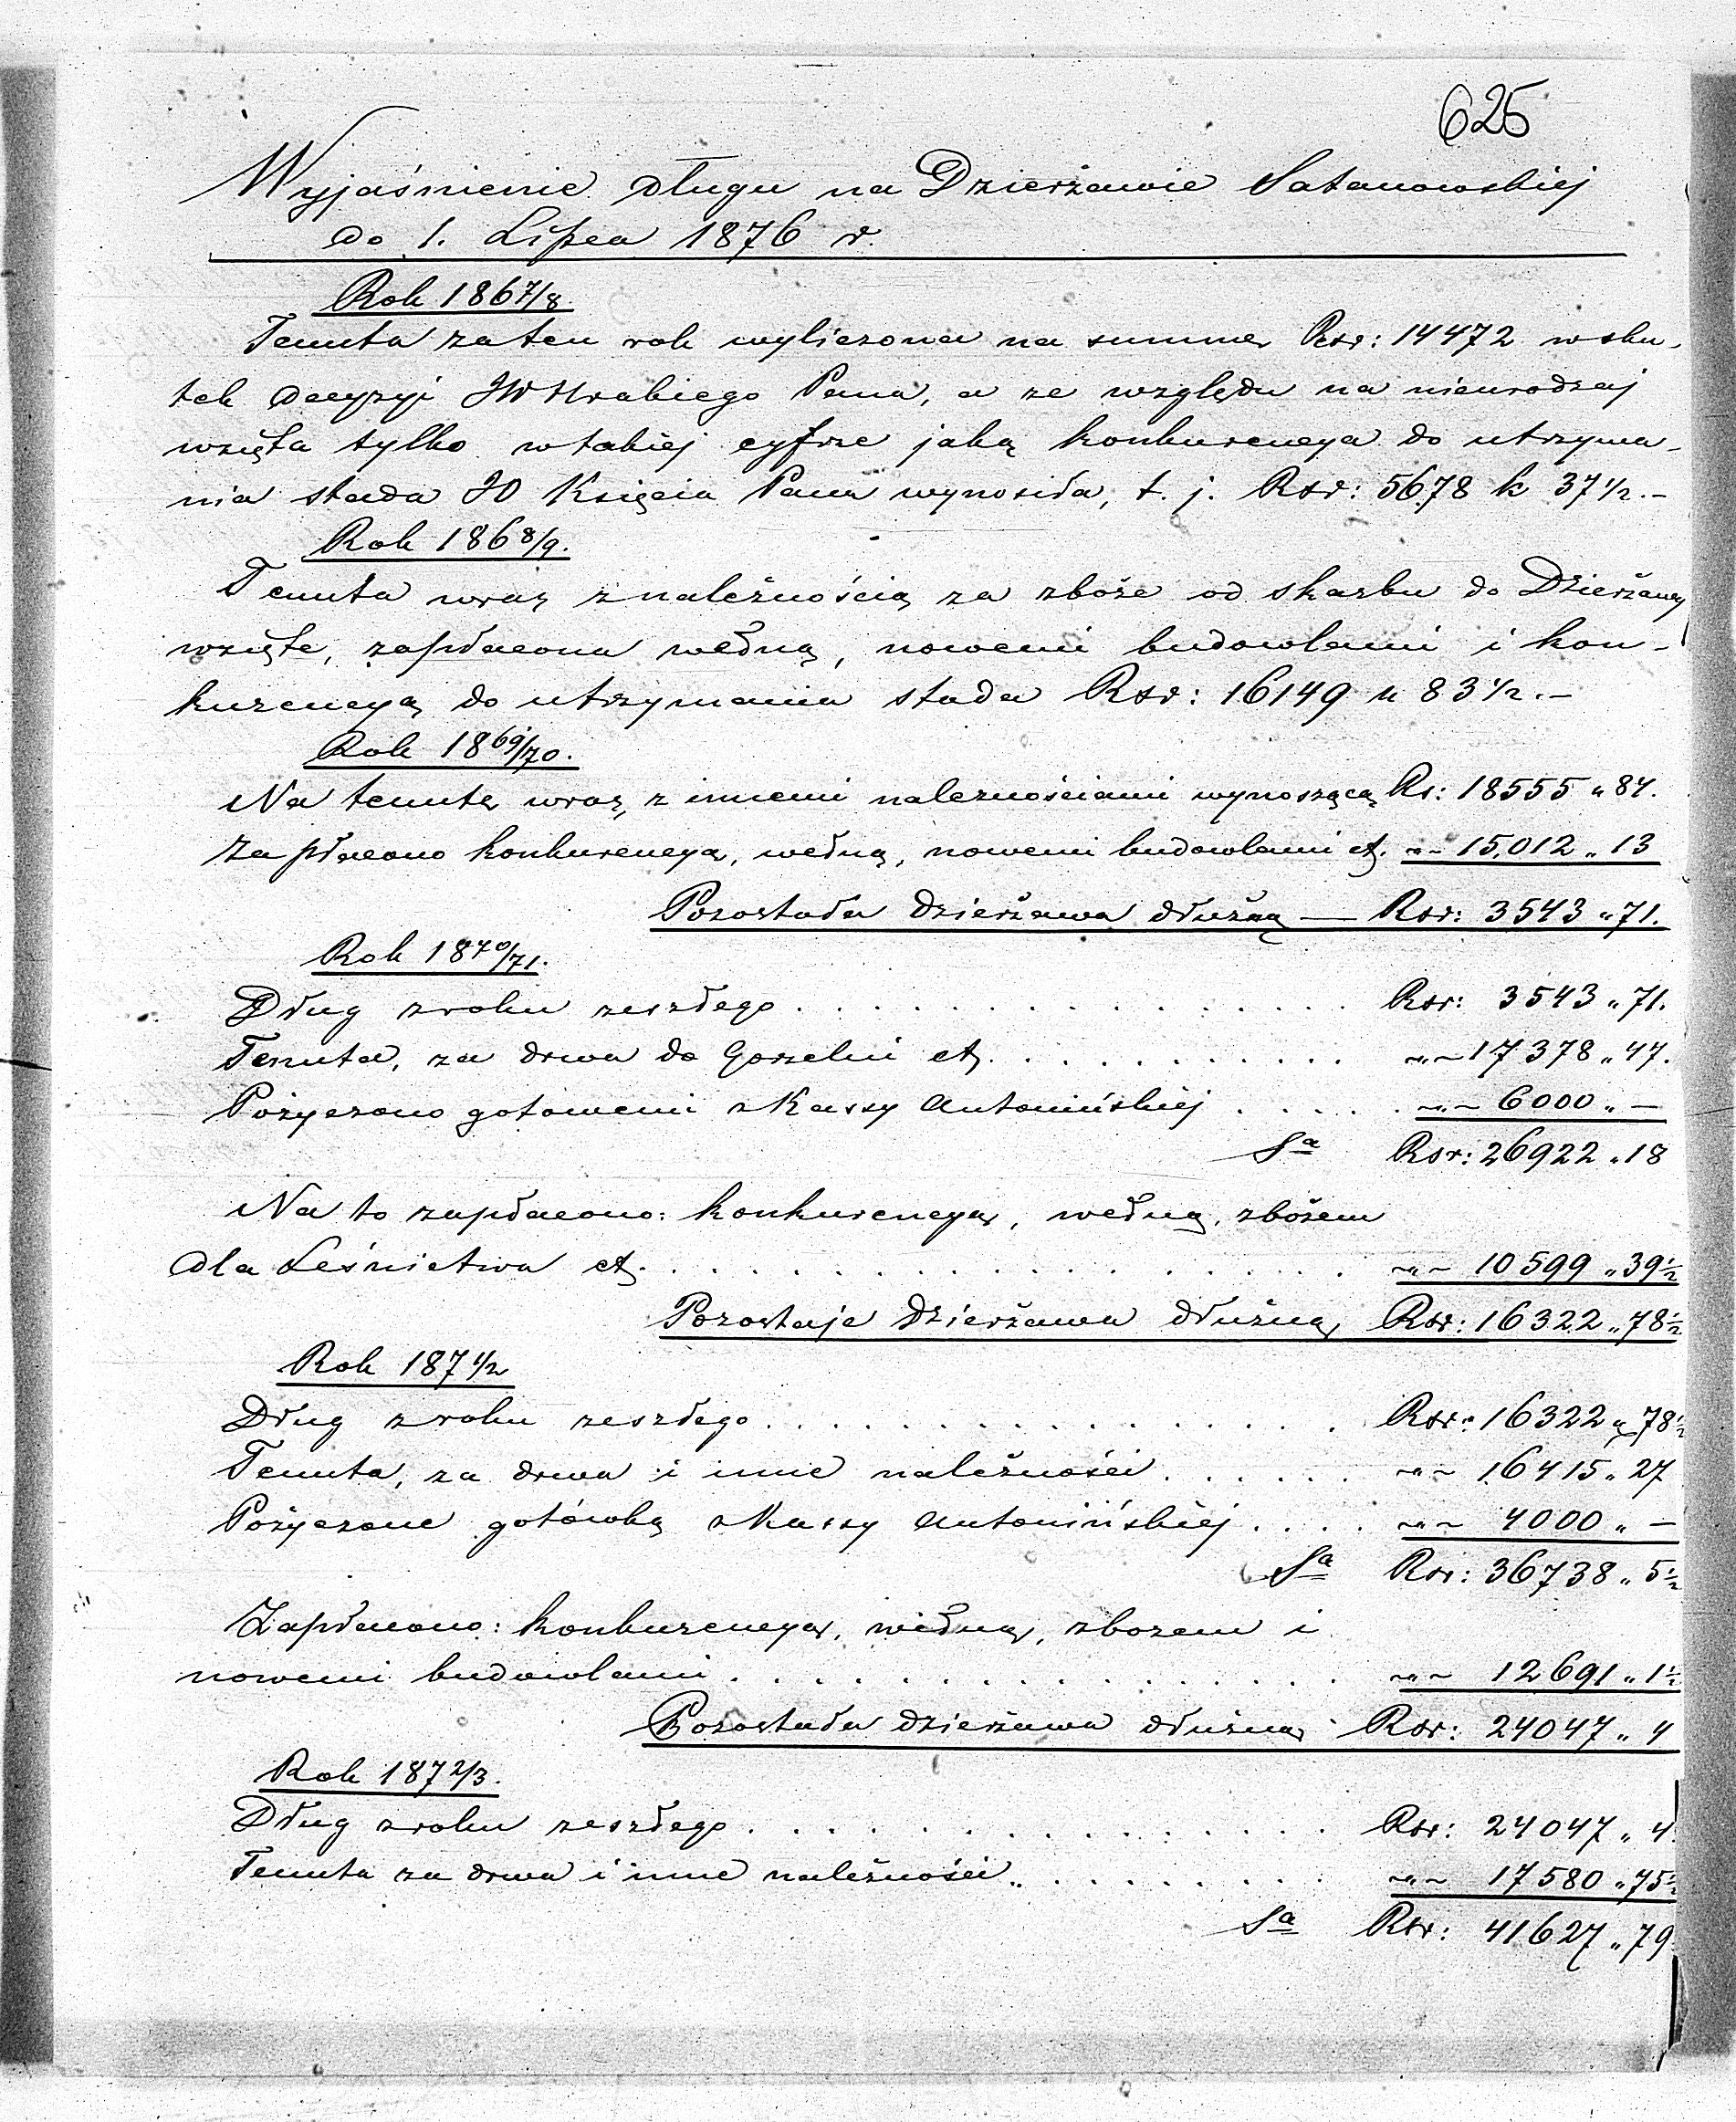 625
Wyjaśnienie długu na Dzierżawie Satanowskiej
do 1. Lipca 1876 r.
Rok 1867/8.
Tenuta za ten rok wyliczona na summę Rsr: 14472 wsku-
tek decyzyi JW Hrabiego Pana, a ze względu na nieurodzaj
wzięta tylko w takiej cyfrze jaką konkurencya do utrzyma-
nia stada JO Księcia Pana wynosiła, t. j. Rsr: 5678 k 37½.–
Rok 1868/9.
Tenuta wraz z należnością za zboże od skarbu do Dzierżawy
wzięte, zapłacona wełną, nowemi budowlami i kon-
kurencyą do utrzymania stada Rsr: 16149 k 83½.–
Rok 1869/70.
Na tenutę wraz z innemi należnościami wynoszącą Rs: 18555 „ 84.
Zapłacono konkurencyą, wełną, nowemi budowlami et. ~„~ 15,012 „ 13
Pozostała dzierżawa dłużną — Rsr: 3543 „ 71.
Rok 1870/71.
Dług z roku zeszłego . . . . . . . . . . Rsr: 3543 „ 71.
Tenuta, za drwa do Gorzelni et. . . . . . . . . . ~„~ 17378 „ 47.
Pożyczono gotowemi z Kassy Antonińskiej . . . . . ~„~ 6000 „ —
Sa Rsr: 26922 „ 18
Na to zapłacono: konkurencyą, wełną, zbożem
dla Leśnictwa et. . . . . . . . . . . . ~„~ 10599 „ 39½
Pozostaje dzierżawa dłużną Rsr: 16322 „ 78½
Rok 1871/2
Dług z roku zeszłego . . . . . . . . . . Rsr: 16322 „ 78½
Tenuta, za drwa i inne należności . . . . . . ~„~ 16415 „ 27
Pożyczone gotówką z Kassy Antonińskiej . . . . ~„~ 4000 „ —
Sa Rsr: 36738 „ 5½
Zapłacono: konkurencyą, wełną, zbożem i
nowemi budowlami . . . . . . . . . . . ~„~ 12691 „ 1½
Pozostała dzierżawa dłużną Rsr: 24047 „ 4
Rok 1872/3.
Dług z roku zeszłego . . . . . . . . . . Rsr: 24047 „ 4.
Tenuta za drwa i inne należności . . . . . . . . . ~„~ 17580 „ 75½
Sa Rsr: 41627 „ 79